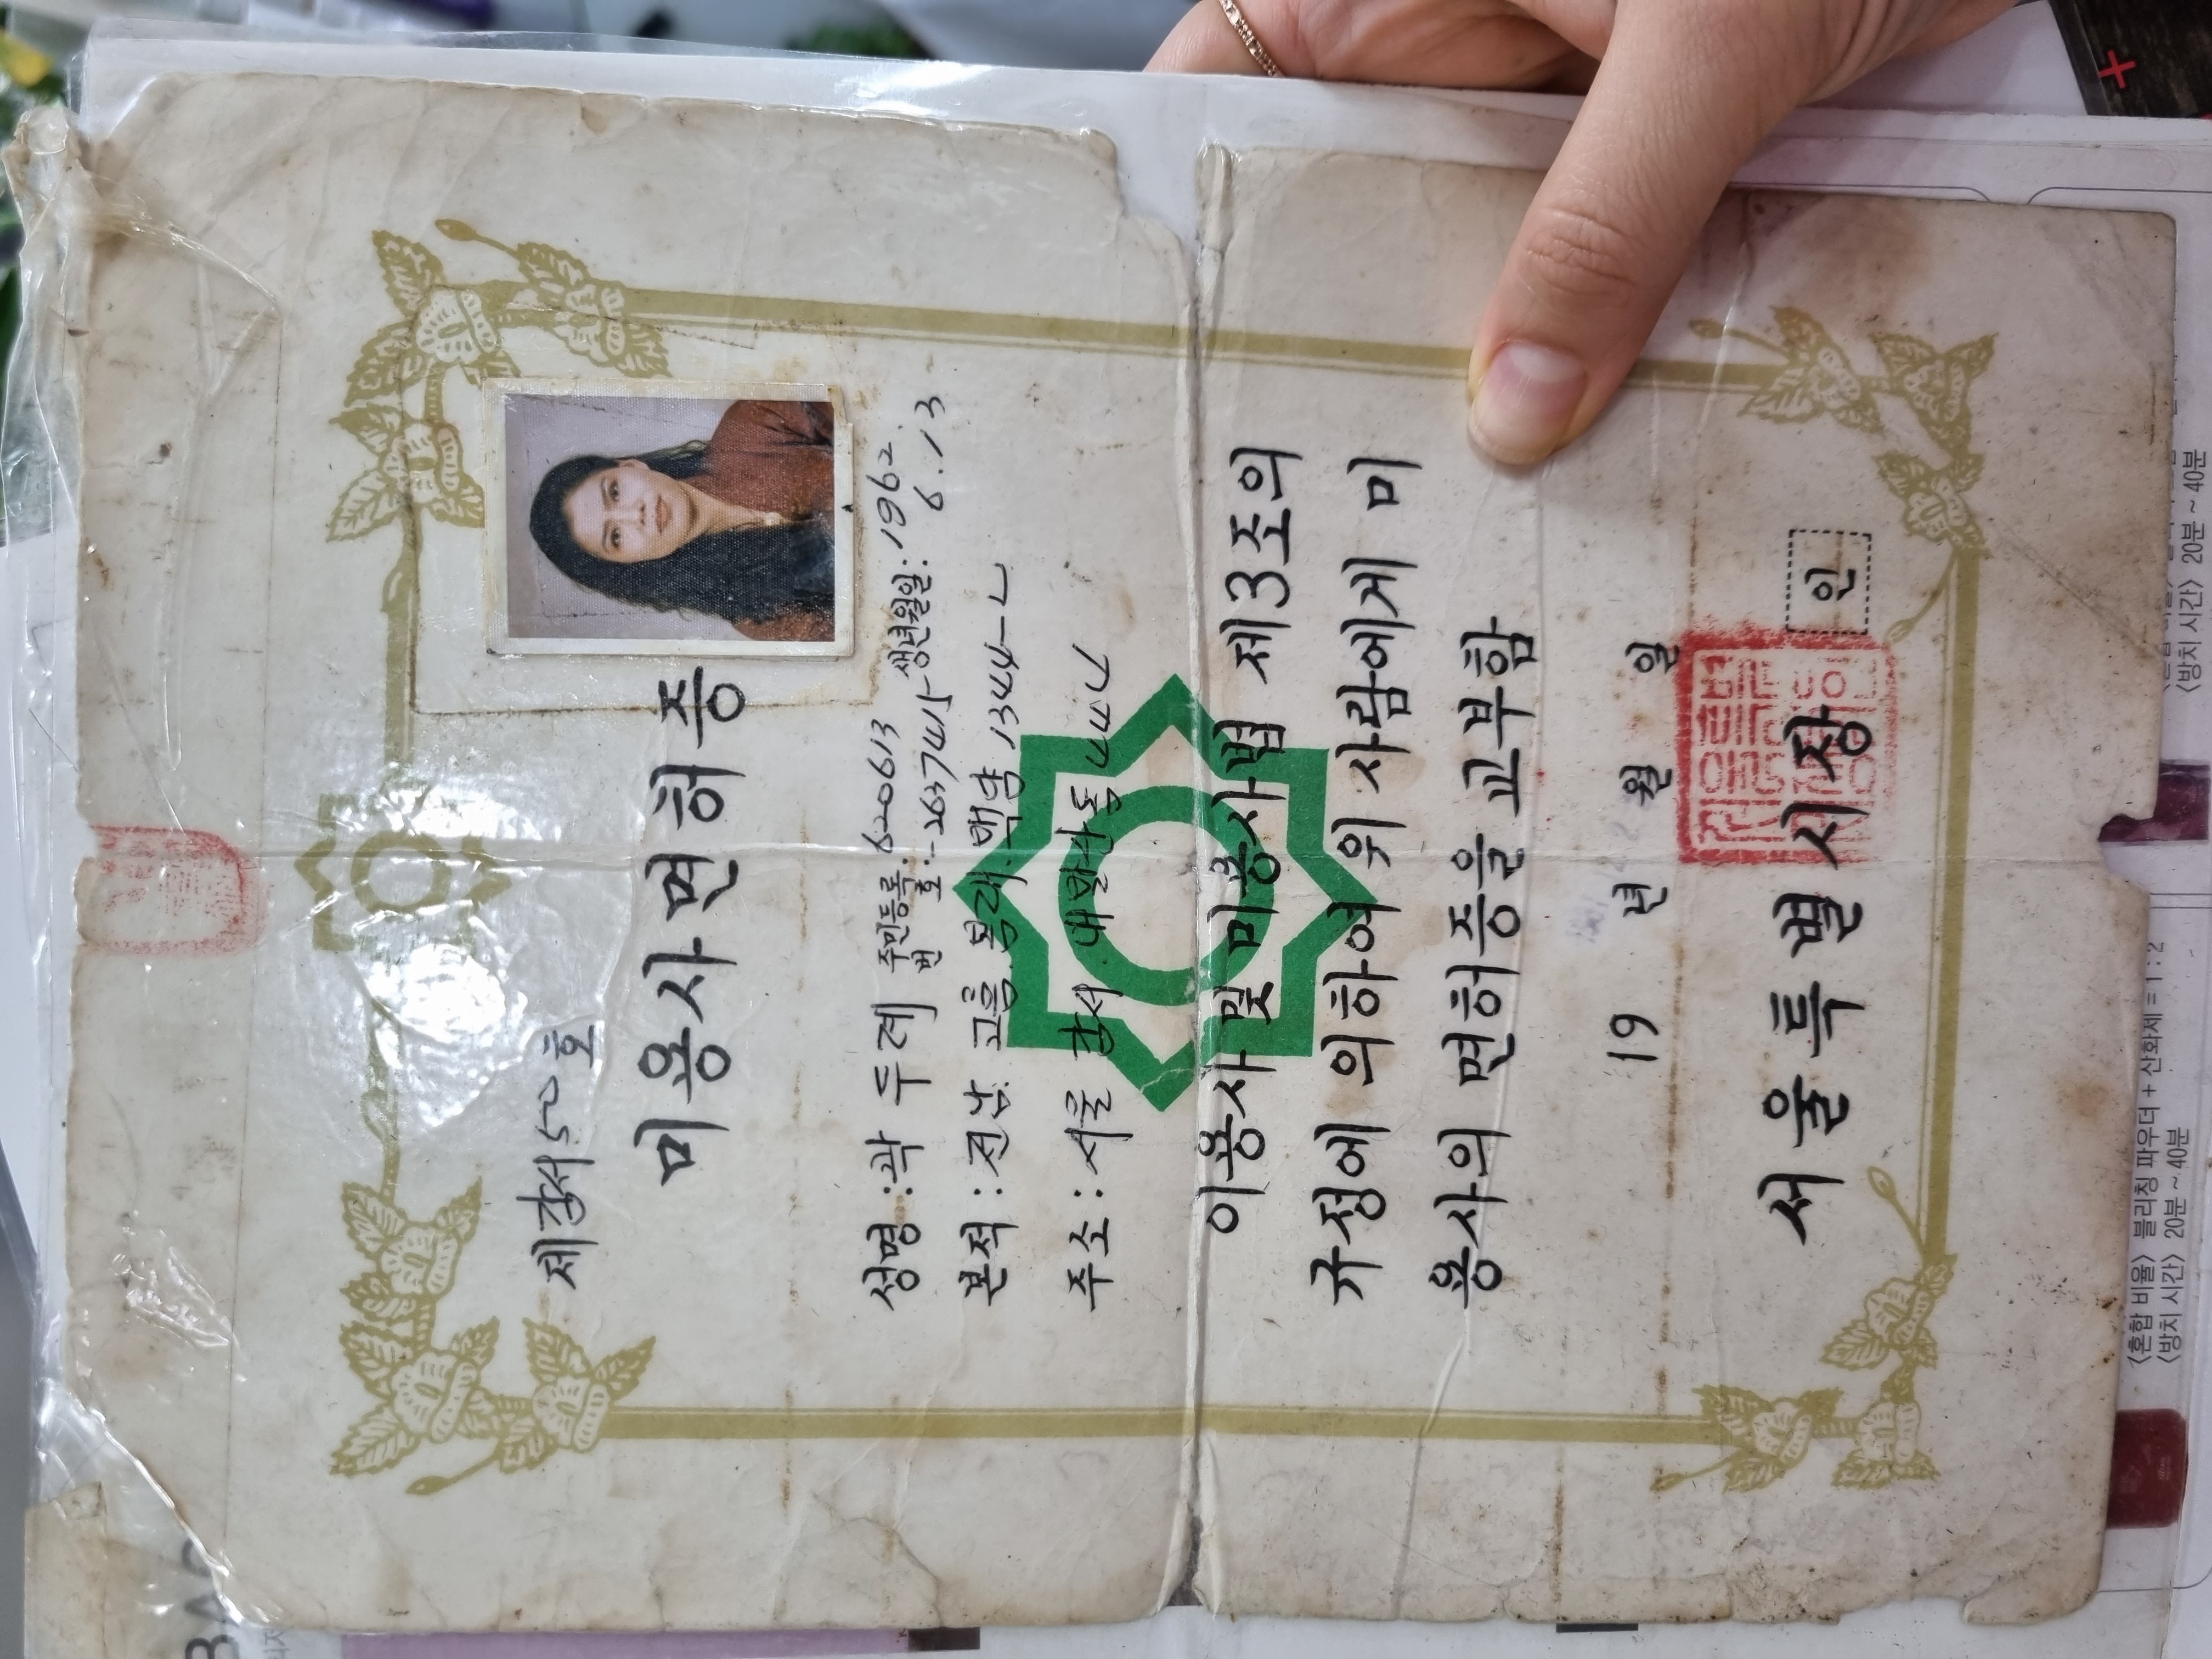 제강서550호
미용사면허증
성명:곽두례 주민등록번호:620613-2637415 생년월일:1962.6.13
본적:전남 고흥 봉래 백양 1344-2
주소:서울 강서 내발산동
이용사및미용사법 제3조의
규정에 의하여 위 사람에게 미
용사의 면허증을 교부함
19 년 월 일
서울특별시장 인
〈방치 시간〉 20분 ~ 40분
〈혼합 비율〉 블리칭 파우더 + 산화제 = 1 : 2
〈방치 시간〉 20분 ~ 40분